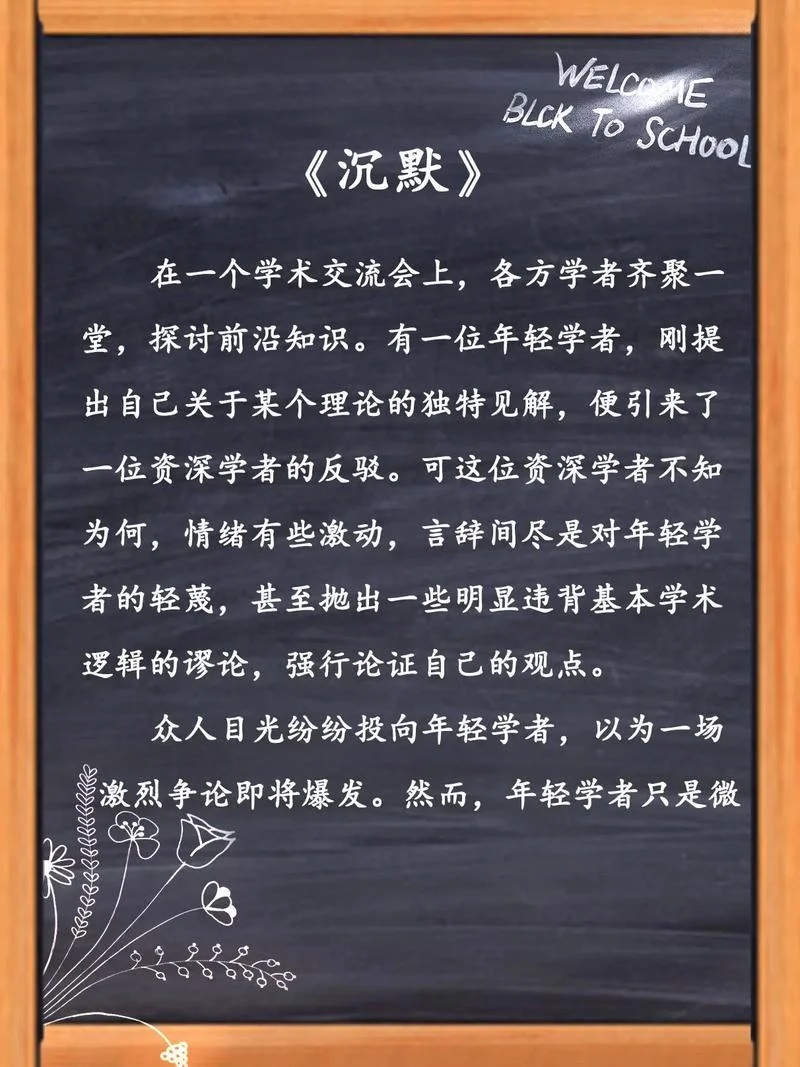 WELCOME
BLCK TO SCHOOL
《沉默》
在一个学术交流会上，各方学者齐聚一
堂，探讨前沿知识。有一位年轻学者，刚提
出自己关于某个理论的独特见解，便引来了
一位资深学者的反驳。可这位资深学者不知
为何，情绪有些激动，言辞间尽是对年轻学
者的轻蔑，甚至抛出一些明显违背基本学术
逻辑的谬论，强行论证自己的观点。
众人目光纷纷投向年轻学者，以为一场
激烈争论即将爆发。然而，年轻学者只是微